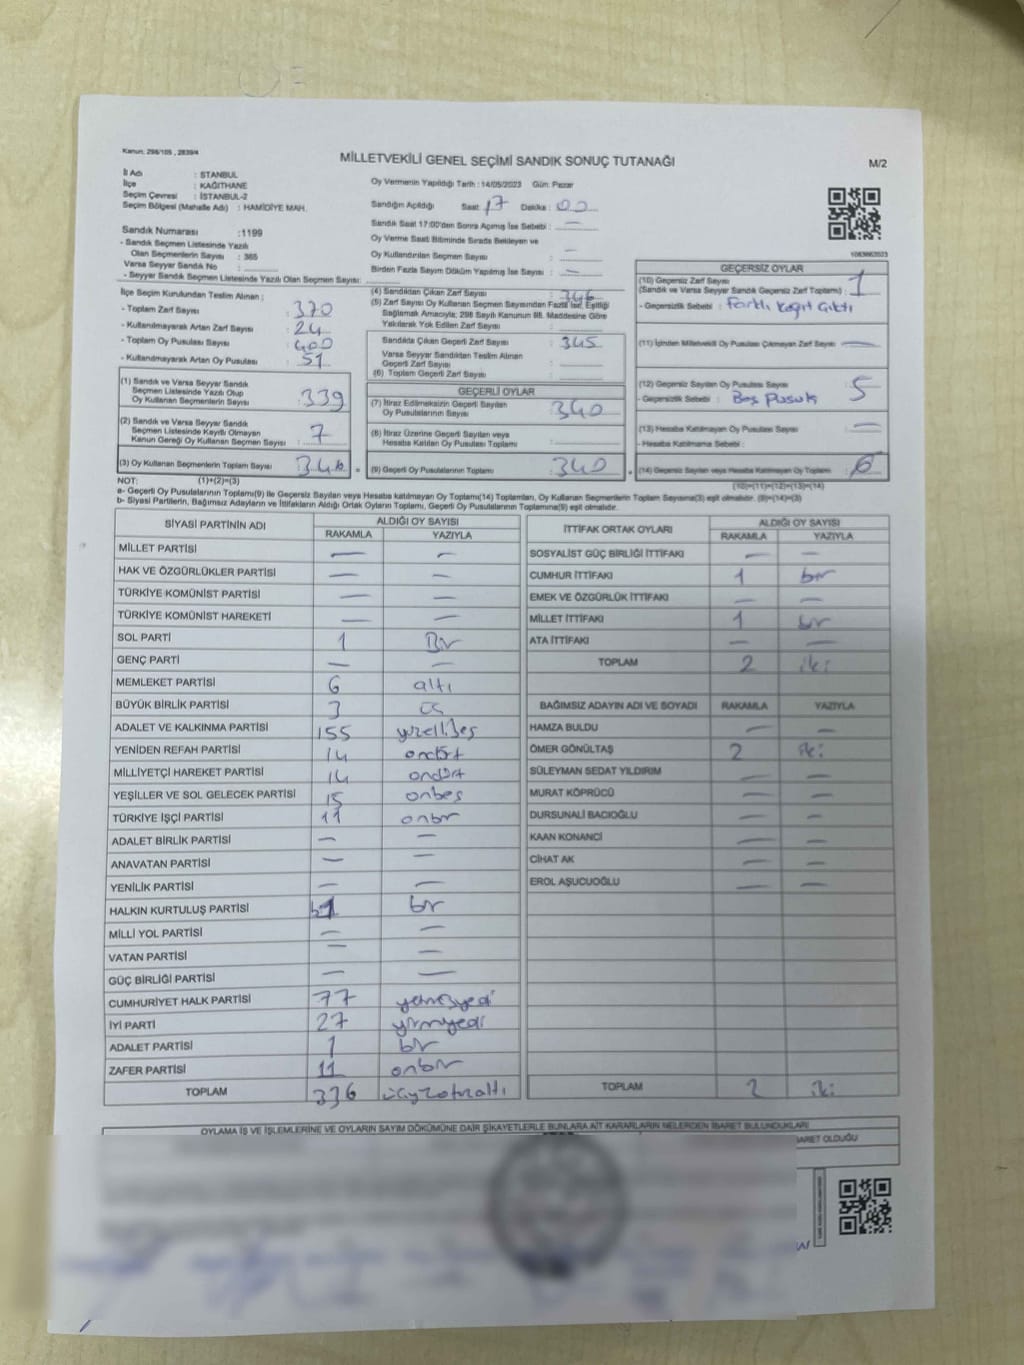 Kanun: 298/105 , 2839/4
MİLLETVEKİLİ GENEL SEÇİMİ SANDIK SONUÇ TUTANAĞI
M/2
İl Adı : STANBUL
İlçe : KAĞITHANE
Seçim Çevresi : İSTANBUL-2
Seçim Bölgesi (Mahalle Adı) : HAMİDİYE MAH.
Sandık Numarası :1199
- Sandık Seçmen Listesinde Yazılı
Olan Seçmenlerin Sayısı : 365
Varsa Seyyar Sandık No :
- Seyyar Sandık Seçmen Listesinde Yazılı Olan Seçmen Sayısı:
Oy Vermenin Yapıldığı Tarih :14/05/2023 Gün: Pazar
Sandığın Açıldığı Saat: 17 Dakika : 00
Sandık Saat 17:00'den Sonra Açılmış İse Sebebi : —
Oy Verme Saati Bitiminde Sırada Bekleyen ve
Oy Kullandırılan Seçmen Sayısı : —
Birden Fazla Sayım Döküm Yapılmış İse Sayısı : —
1083662023
İlçe Seçim Kurulundan Teslim Alınan ;
- Toplam Zarf Sayısı : 370
- Kullanılmayarak Artan Zarf Sayısı : 24
- Toplam Oy Pusulası Sayısı : 400
- Kullanılmayarak Artan Oy Pusulası : 51
(4) Sandıktan Çıkan Zarf Sayısı : 346
(5) Zarf Sayısı Oy Kullanan Seçmen Sayısından Fazla İse, Eşitliği
Sağlamak Amacıyla; 298 Sayılı Kanunun 98. Maddesine Göre
Yakılarak Yok Edilen Zarf Sayısı :
Sandıkta Çıkan Geçerli Zarf Sayısı : 345
Varsa Seyyar Sandıktan Teslim Alınan
Geçerli Zarf Sayısı :
(6) Toplam Geçerli Zarf Sayısı :
GEÇERSİZ OYLAR
(10) Geçersiz Zarf Sayısı
(Sandık ve Varsa Seyyar Sandık Geçersiz Zarf Toplamı) : 1
- Geçersizlik Sebebi : Farklı kağıt çıktı
(11) İçinden Milletvekili Oy Pusulası Çıkmayan Zarf Sayısı : —
(12) Geçersiz Sayılan Oy Pusulası Sayısı : 5
- Geçersizlik Sebebi : Boş Pusula
(13) Hesaba Katılmayan Oy Pusulası Sayısı : —
- Hesaba Katılmama Sebebi :
(14) Geçersiz Sayılan veya Hesaba Katılmayan Oy Toplamı : 6
(10)+(11)+(12)+(13)=(14)
(1) Sandık ve Varsa Seyyar Sandık
Seçmen Listesinde Yazılı Olup
Oy Kullanan Seçmenlerin Sayısı : 339
(2) Sandık ve Varsa Seyyar Sandık
Seçmen Listesinde Kayıtlı Olmayan
Kanun Gereği Oy Kullanan Seçmen Sayısı : 7
(3) Oy Kullanan Seçmenlerin Toplam Sayısı : 346
GEÇERLİ OYLAR
(7) İtiraz Edilmeksizin Geçerli Sayılan
Oy Pusulalarının Sayısı : 340
(8) İtiraz Üzerine Geçerli Sayılan veya
Hesaba Katılan Oy Pusulası Toplamı :
(9) Geçerli Oy Pusulalarının Toplamı : 340
NOT: (1)+(2)=(3)
a- Geçerli Oy Pusulalarının Toplamı(9) ile Geçersiz Sayılan veya Hesaba katılmayan Oy Toplamı(14) Toplamları, Oy Kullanan Seçmenlerin Toplam Sayısına(3) eşit olmalıdır. (9)+(14)=(3)
b- Siyasi Partilerin, Bağımsız Adayların ve İttifakların Aldığı Ortak Oyların Toplamı, Geçerli Oy Pusulalarının Toplamına(9) eşit olmalıdır.
SİYASİ PARTİNİN ADI ALDIĞI OY SAYISI
RAKAMLA YAZIYLA
MİLLET PARTİSİ — —
HAK VE ÖZGÜRLÜKLER PARTİSİ — —
TÜRKİYE KOMÜNİST PARTİSİ — —
TÜRKİYE KOMÜNİST HAREKETİ — —
SOL PARTİ 1 Bir
GENÇ PARTİ — —
MEMLEKET PARTİSİ 6 altı
BÜYÜK BİRLİK PARTİSİ 3 üç
ADALET VE KALKINMA PARTİSİ 155 yüzellibeş
YENİDEN REFAH PARTİSİ 14 ondört
MİLLİYETÇİ HAREKET PARTİSİ 14 ondört
YEŞİLLER VE SOL GELECEK PARTİSİ 15 onbeş
TÜRKİYE İŞÇİ PARTİSİ 11 onbir
ADALET BİRLİK PARTİSİ — —
ANAVATAN PARTİSİ — —
YENİLİK PARTİSİ — —
HALKIN KURTULUŞ PARTİSİ 1 bir
MİLLİ YOL PARTİSİ — —
VATAN PARTİSİ — —
GÜÇ BİRLİĞİ PARTİSİ — —
CUMHURİYET HALK PARTİSİ 77 yetmişyedi
İYİ PARTİ 27 yirmiyedi
ADALET PARTİSİ 1 bir
ZAFER PARTİSİ 11 onbir
TOPLAM 336 üçyüzotuzaltı
İTTİFAK ORTAK OYLARI ALDIĞI OY SAYISI
RAKAMLA YAZIYLA
SOSYALİST GÜÇ BİRLİĞİ İTTİFAKI — —
CUMHUR İTTİFAKI 1 bir
EMEK VE ÖZGÜRLÜK İTTİFAKI — —
MİLLET İTTİFAKI 1 bir
ATA İTTİFAKI — —
TOPLAM 2 iki
BAĞIMSIZ ADAYIN ADI VE SOYADI RAKAMLA YAZIYLA
HAMZA BULDU — —
ÖMER GÖNÜLTAŞ 2 iki
SÜLEYMAN SEDAT YILDIRIM — —
MURAT KÖPRÜCÜ — —
DURSUNALİ BACIOĞLU — —
KAAN KONANCİ — —
CİHAT AK — —
EROL AŞUCUOĞLU — —
TOPLAM 2 iki
OYLAMA İŞ VE İŞLEMLERİNE VE OYLARIN SAYIM DÖKÜMÜNE DAİR ŞİKAYETLERLE BUNLARA AİT KARARLARIN NELERDEN İBARET BULUNDUKLARI
BARET OLDUĞU